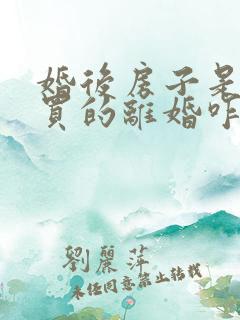 婚後房子是
買的離婚咋
劉麗萍
未经同意禁止转载